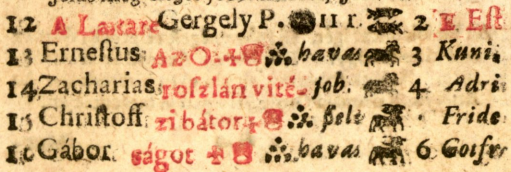 12 A Lætare Gergely P. 11 r. 2 E Est
13 Ernestus A2O. havas 3 Kuni
14 Zacharias roszlán vité- job. 4 Adri
15 Christoff zi bátor felt Fride
16 Gábor ságot havas 6 Gotfr